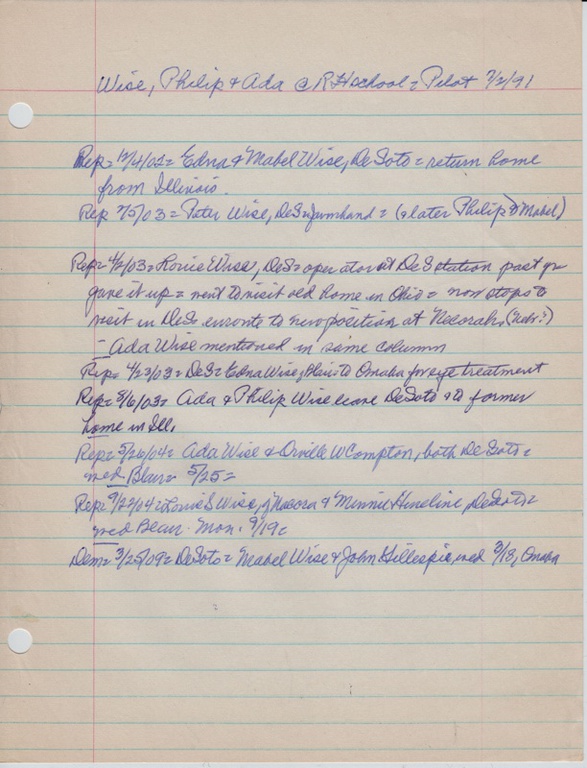 Wise, Philip & Ada @ R H school = Pilot 7/2/91
Rep = 12/4/02 = Edna & Mabel Wise, DeSoto = return home
from Illinois.
Rep 2/5/03 = Peter Wise, DeS = farmhand = (& later Philip & Mabel)
Rep = 4/2/03 = Louie Wise, DeS = operator at DeS station past yr
gave it up = went to visit old home in Ohio = now stops to
visit in DeS enroute to new position at Necorah, (Nebr.?)
= Ada Wise mentioned in same column
Rep = 4/23/03 = DeS = Edna Wise, Blair to Omaha for eye treatment
Rep = 8/6/03 = Ada & Philip Wise leave DeSoto to former
home in Ill.
Rep = 5/26/04 = Ada Wise & Orville W Compton, both DeSoto =
wed Blair = 5/25 =
Rep = 9/22/04 = Louis S Wise, of Nacora & Minnie Hineline, DeSoto =
wed Blair Mon. 9/19 =
Dem = 3/25/09 = DeSoto = Mabel Wise & John Gillespie, wed 3/18, Omaha